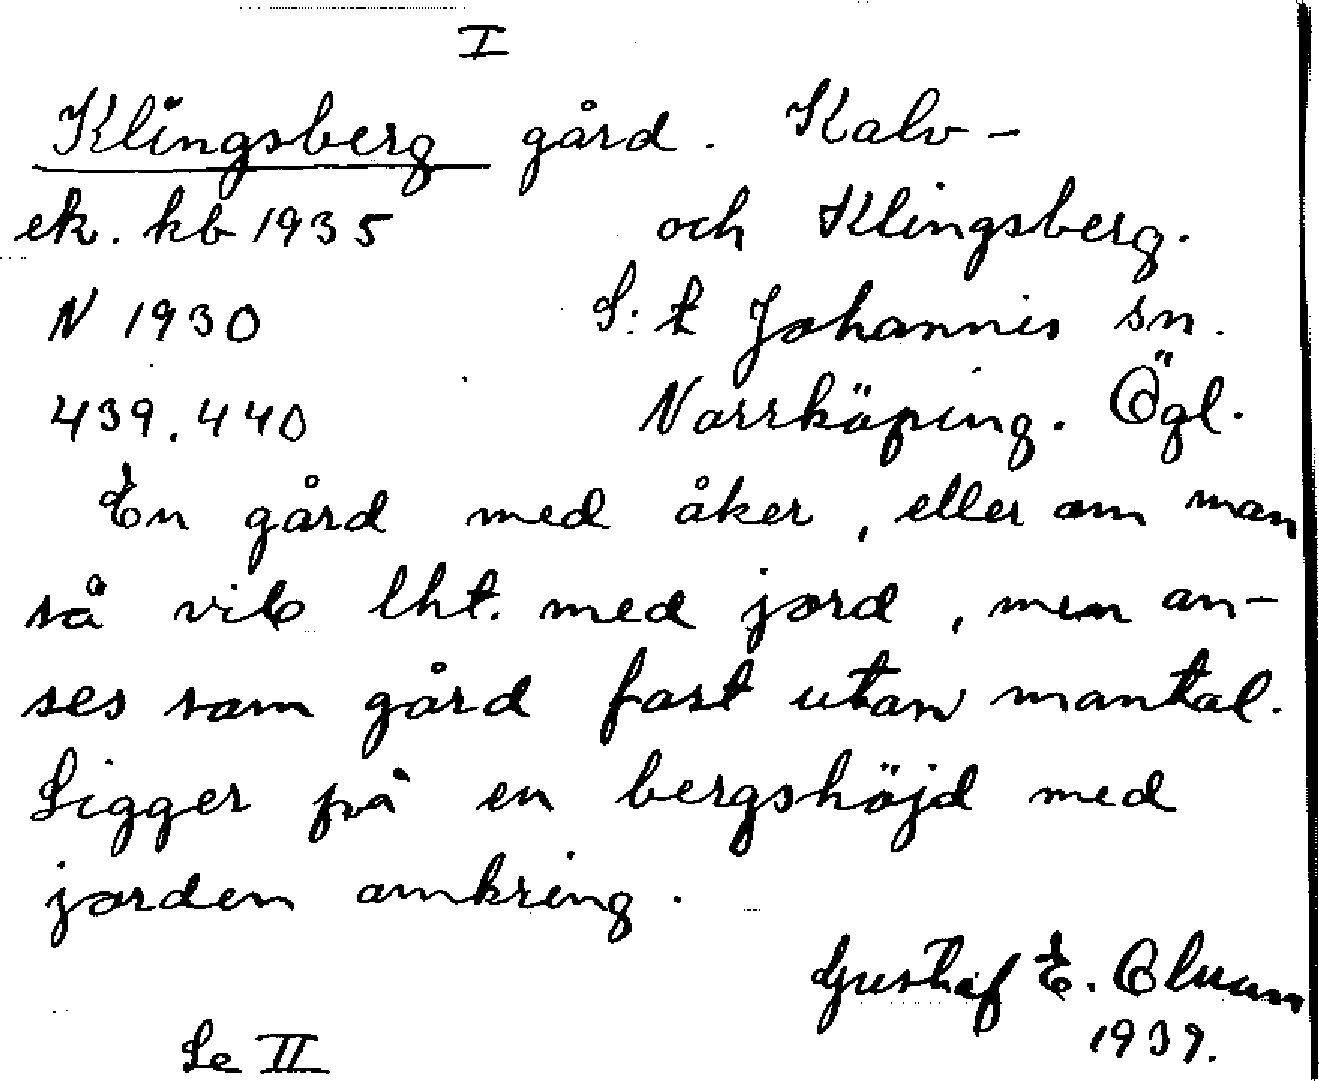 I
Klingsberg gård. Kalv-
ek. kb 1935 och Klingsberg.
N 1930 S:t Johannis sn.
439.440 Norrköping. Ögl.
En gård med åker, eller om man
så vill lht. med jord, men an-
ses som gård fast utan mantal.
Ligger på en bergshöjd med
jorden omkring.
Gustaf E.
1939.
Se II